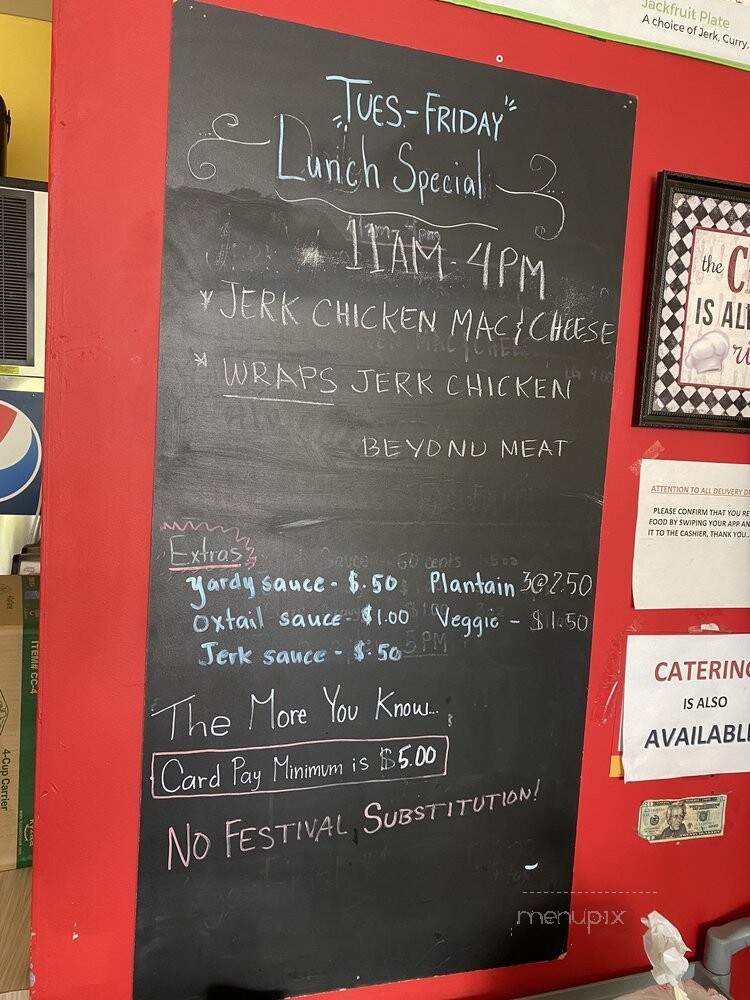 Jackfruit Plate
A choice of Jerk, Curry,
"TUES.-FRIDAY"
Lunch Special
11AM-4PM
* JERK CHICKEN MAC & CHEESE
* WRAPS JERK CHICKEN
BEYOND MEAT
Extras
yardy sauce - $.50 Plantain 3@2.50
oxtail sauce - $1.00 Veggie - $1.50
Jerk sauce - $.50
5PM
The More You Know...
Card Pay Minimum is $5.00
NO FESTIVAL SUBSTITUTION!
the
IS AL
ATTENTION TO ALL DELIVERY D
PLEASE CONFIRM THAT YOU RE
FOOD BY SWIPING YOUR APP AN
IT TO THE CASHIER, THANK YOU...
CATERING
IS ALSO
AVAILABLE
ITEM# CC-4
4-Cup Carrier
menupix